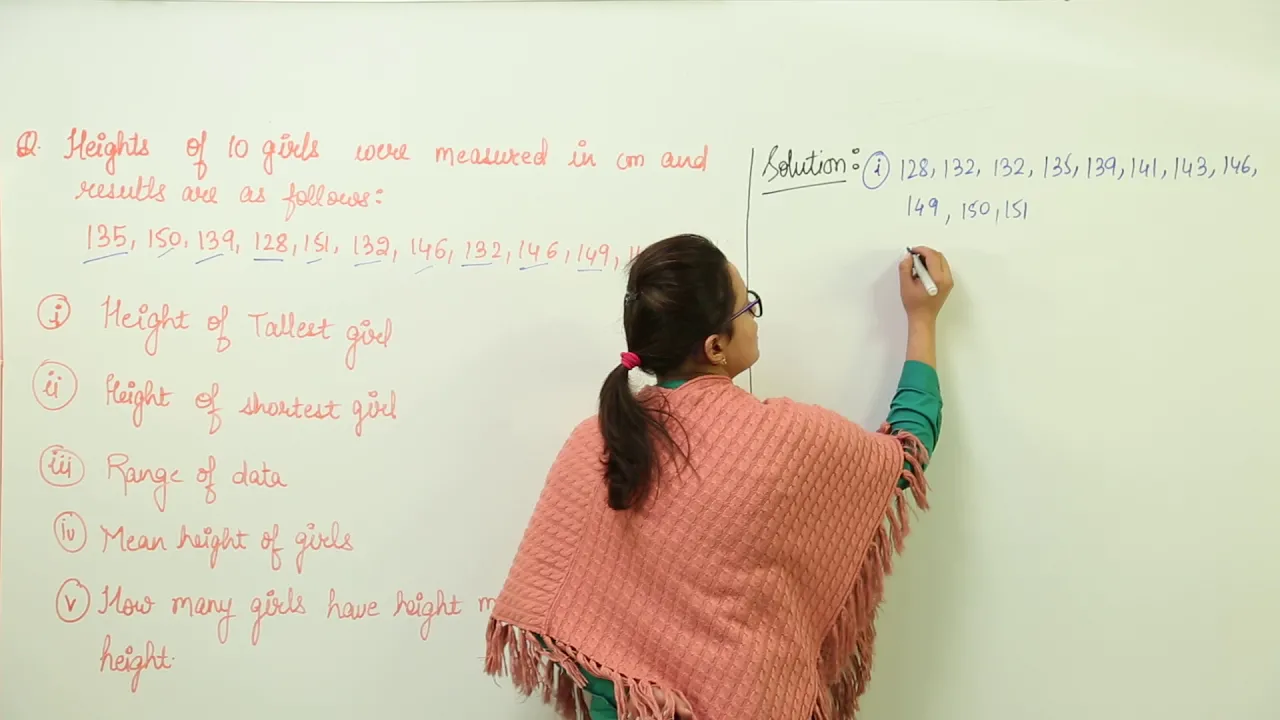 Q. Heights of 10 girls were measured in cm and
results are as follows:
135, 150, 139, 128, 151, 132, 146, 132, 146, 149,
i Height of Tallest girl
ii Height of shortest girl
iii Range of data
iv Mean height of girls
v How many girls have height
height.
Solution: i 128, 132, 132, 135, 139, 141, 143, 146,
149, 150, 151